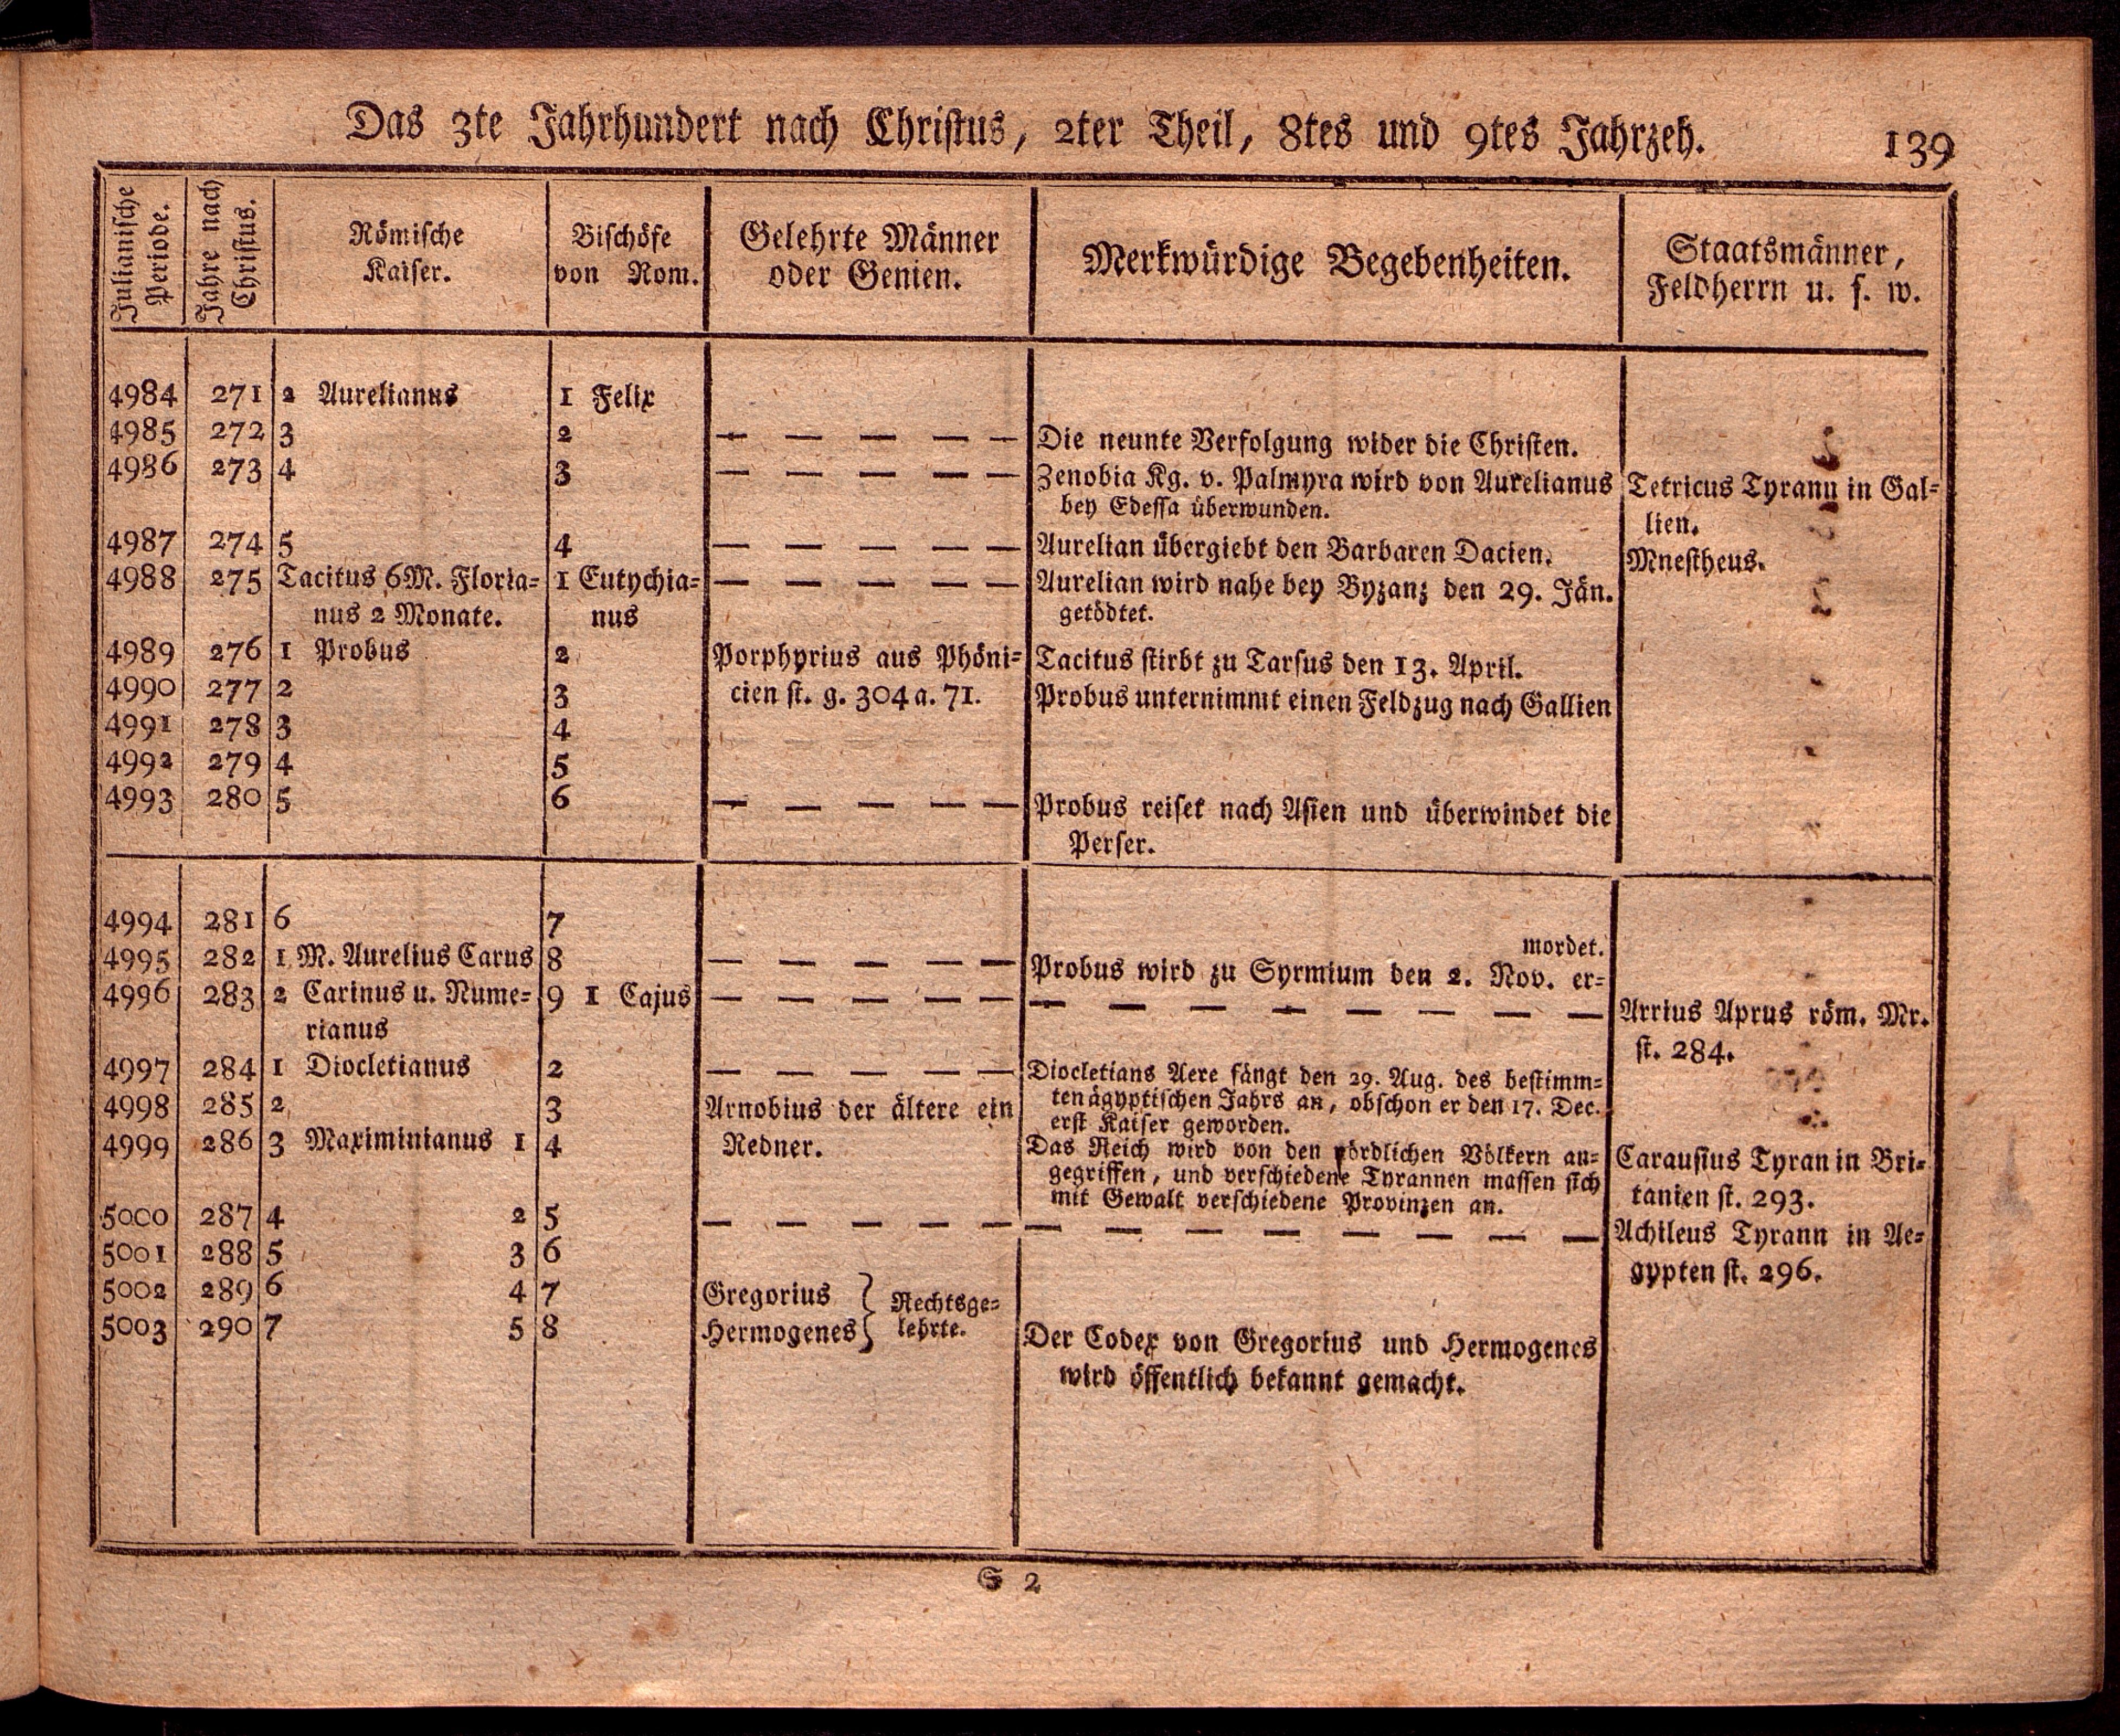 Das 3te Jahrhundert nach Christus, 2ter Theil, 8tes und 9tes Jahrzeh. 139
Julianische
Periode.
Jahre nach
Christus.
Römische
Kaiser.
Bischöfe
von Rom.
Gelehrte Männer
oder Genien.
Merkwürdige Begebenheiten.
Staatsmänner,
Feldherrn u. s. w.
4984 271 2 Aurelianus 1 Felix
4985 272 3 2 — — — — — Die neunte Verfolgung wider die Christen.
4986 273 4 3 — — — — — Zenobia Kg. v. Palmyra wird von Aurelianus Tetricus Tyrann in Gal-
bey Edessa überwunden. lien.
4987 274 5 4 — — — — — Aurelian übergiebt den Barbaren Dacien. Mnestheus.
4988 275 Tacitus 6M. Floria- 1 Eutychia- — — — — — Aurelian wird nahe bey Byzanz den 29. Jän.
nus 2 Monate. nus getödtet.
4989 276 1 Probus 2 Porphyrius aus Phöni- Tacitus stirbt zu Tarsus den 13. April.
4990 277 2 3 cien st. g. 304 a. 71. Probus unternimmt einen Feldzug nach Gallien
4991 278 3 4
4992 279 4 5
4993 280 5 6 — — — — — Probus reiset nach Asien und überwindet die
Perser.
4994 281 6 7
mordet.
4995 282 1 M. Aurelius Carus 8 — — — — — Probus wird zu Syrmium den 2. Nov. er-
4996 283 2 Carinus u. Nume- 9 1 Cajus — — — — — — — — — — — — — Arrius Aprus röm. Mr.
rianus st. 284.
4997 284 1 Diocletianus 2 — — — — — Diocletians Aere fängt den 29. Aug. des bestimm-
4998 285 2 3 Arnobius der ältere ein ten ägyptischen Jahrs an, obschon er den 17. Dec.
erst Kaiser geworden.
4999 286 3 Maximinianus 1 4 Redner. Das Reich wird von den nördlichen Völkern an- Carausius Tyran in Bri-
gegriffen, und verschiedene Tyrannen massen sich
mit Gewalt verschiedene Provinzen an. tanien st. 293.
5000 287 4 2 5 — — — — — — — — — — — — — Achileus Tyrann in Ae-
5001 288 5 3 6 gypten st. 296.
5002 289 6 4 7 Gregorius } Rechtsge-
5003 290 7 5 8 Hermogenes } lehrte. Der Codex von Gregorius und Hermogenes
wird öffentlich bekannt gemacht.
S 2